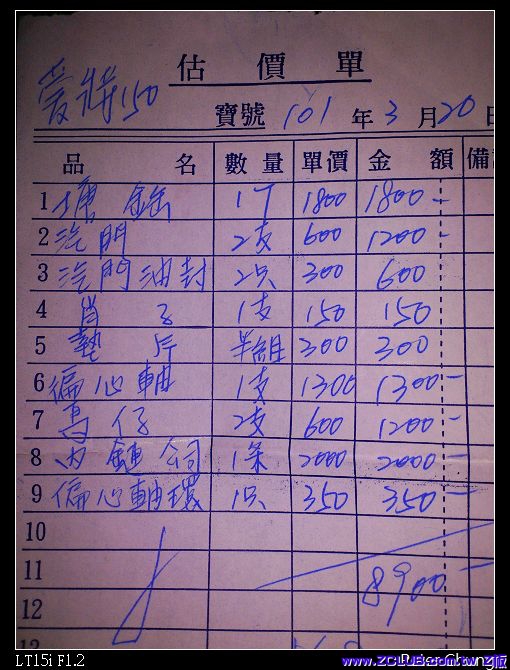 愛將150
估價單
寶號 101年3月20日
品名 數量 單價 金額 備
1 塘缸 1丁 1800 1800
2 汽門 2支 600 1200
3 汽門油封 2只 300 600
4 肖子 1支 150 150
5 墊片 半組 300 300
6 偏心軸 1支 1300 1300
7 鳥仔 2支 600 1200
8 內鏈公司 1条 2000 2000
9 偏心軸環 1只 350 350
10
11 8900
12
LT15i F1.2
www.ZCLUB.com.tw